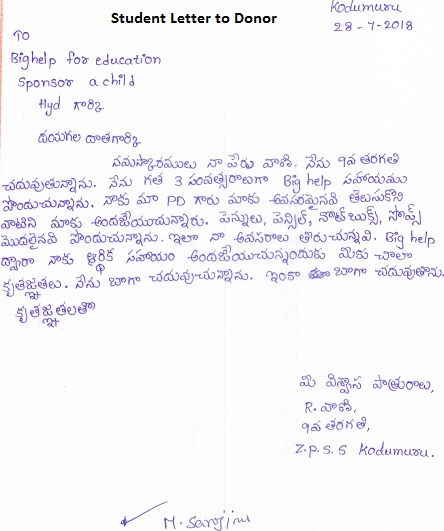 Student Letter to Donor
Kodumuru
28-7-2018
TO
Bighelp for education
Sponsor a child
Hyd గారికి
దయగల దాతగారికి
నమస్కారములు నా పేరు వాణి. నేను 9వ తరగతి
చదువుతున్నాను. నేను గత 3 సంవత్సరాలుగా Big help సహాయము
పొందుచున్నాను. నాకు మా PD గారు మాకు అవసరమైనవి తెలుసుకొని
వాటిని మాకు అందజేయుచున్నారు. పెన్నులు, పెన్సిల్, నోట్ బుక్స్, సోప్స్
మొదలైనవి పొందుచున్నాను. ఇలా నా అవసరాలు తీరుచున్నవి. Big help
ద్వారా నాకు ఆర్థిక సహాయం అందజేయుచున్నందుకు మీకు చాలా
కృతజ్ఞతలు. నేను బాగా చదువుచున్నాను. ఇంకా బాగా చదువుతాను.
కృతజ్ఞతలతో
మీ విశ్వాస పాత్రురాలు,
R. వాణి,
9వ తరగతి,
Z.P.S.S Kodumuru.
M. Sarojini